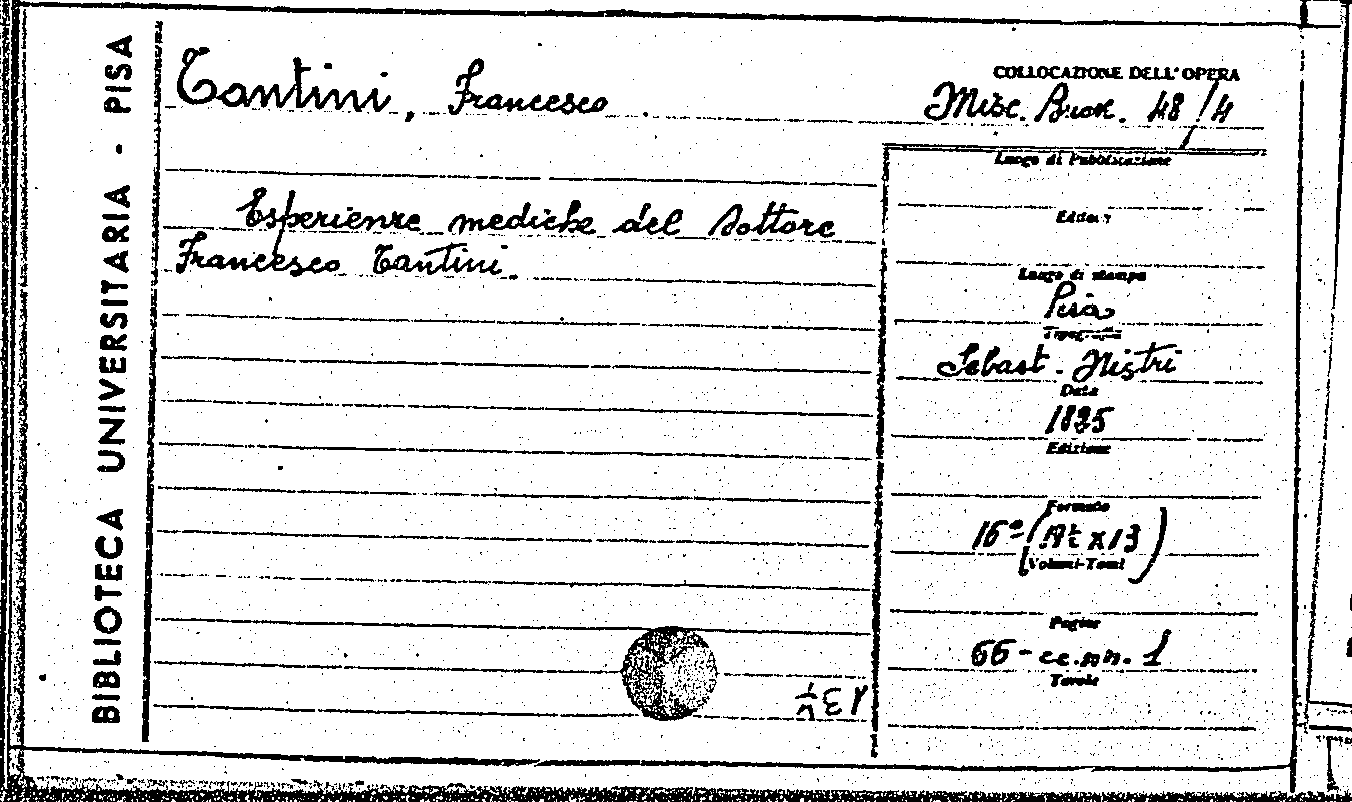 BIBLIOTECA UNIVERSITARIA - PISA
Tantini, Francesco.
COLLOCAZIONE DELL'OPERA
Misc. Buon. 48/4
Esperienze mediche del Dottore
Francesco Tantini.
Luogo di Pubblicazione
Editore
Luogo di stampa
Pisa
Tipografia
Sebast. Nistri
Data
1825
Edizione
Formato
16° (
x 13)
Volumi-Tomi
Pagine
66 - cc.nn. 1
Tavole